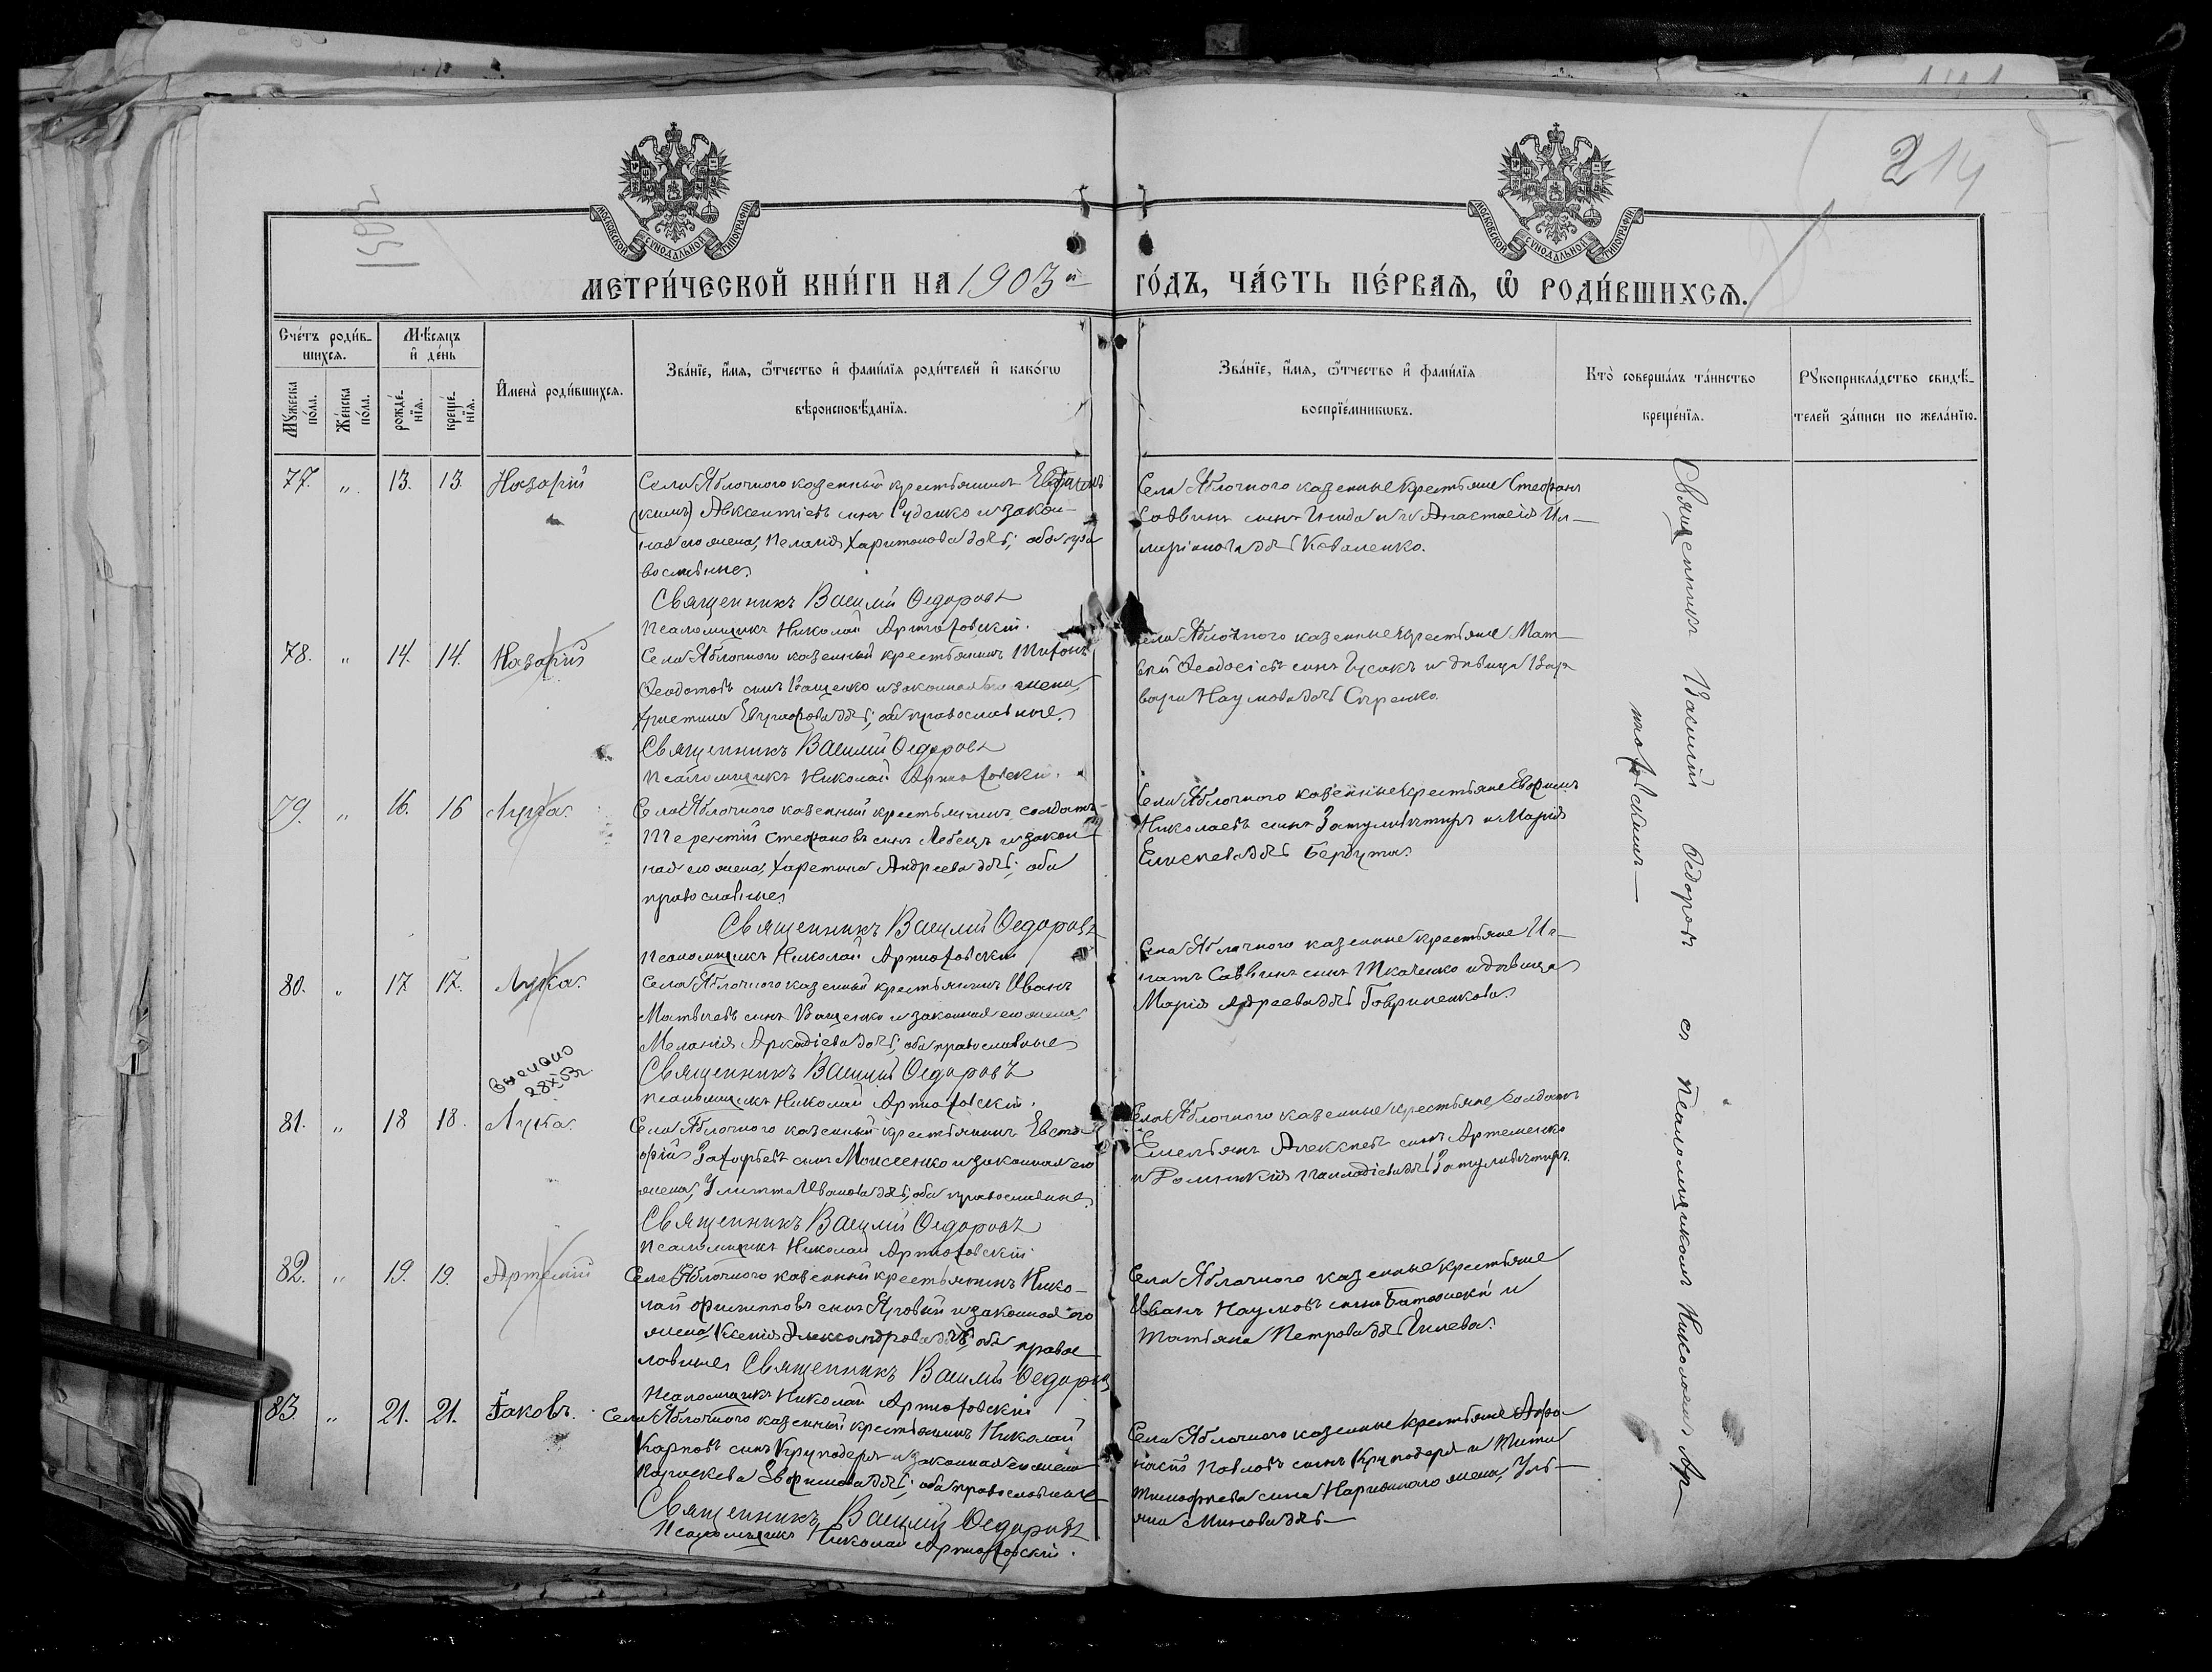 214
МОСКОВСКОЙ СѴНОДАЛЬНОЙ ТИПОГРАФІИ
МОСКОВСКОЙ СѴНОДАЛЬНОЙ ТИПОГРАФІИ
МЕТРИ́ЧЕСКОЙ КНИ́ГИ НА 1903й ГО́ДЪ, ЧА́СТЬ ПЕ́РВАѦ, Ѽ РОДИ́ВШИХСѦ.
Сче́тъ роди́в-
шихся.
Мѣ́сяцъ
и҆ де́нь
Мꙋ́жеска по́ла.
Же́нска по́ла.
рожде́-
нїя.
креще́-
нїя.
И҆мена̀ роди́вшихся.
Зва́нїе, и҆́мя, ѻ҆́тчество и҆ фами́лїя роди́телей и҆ како́гѡ
вѣроисповѣ́данїя.
Зва́нїе, и҆́мя, ѻ҆́тчество и҆ фами́лїя
воспрїе́мникѡвъ.
Кто̀ соверша́лъ та́инство
креще́нїя.
Рꙋкоприкла́дство свидѣ́-
телей за́писи по жела́нїю.
77. „ 13. 13. Назарій
Села Яблочного казенный крестьянинъ
Авксентіевъ сынъ Руденко и закон-
ная его жена, Пелагія Харитонова дочь; оба пра
вославные.
Священникъ Василій Ѳедоровъ
Псаломщикъ Николай Артюховскій.
Села Яблочного казенные крестьяне Стефанъ
Саввинъ сынъ и Анастасія Ил-
ларіонова дочь Коваленко.
78. „ 14. 14. Назарій
Села Яблочного казенный крестьянинъ Тихонъ
Ѳеодотовъ сынъ Ващенко и законная его жена,
Христина Евграфова дочь; оба православные.
Священникъ Василій Ѳедоровъ
Псаломщикъ Николай Артюховскій.
Села Яблочного казенные крестьяне Мат-
вей Ѳеодосіевъ сынъ Гусакъ и дѣвица Вар
вара Наумова дочь
79. „ 16. 16 Лука.
Села Яблочного казенный крестьянинъ, солдатъ
Терентій Стефановъ сынъ Лебедь и закон
ная его жена, Харитина Андреева дочь; оба
православные
Священникъ Василій Ѳедоровъ
Псаломщикъ Николай Артюховскій
Села Яблочного казенные крестьяне Евфимъ
Николаевъ сынъ Затуливѣтръ и Марія
Елисеева дочь
80. „ 17 17. Лука.
Села Яблочного казенный крестьянинъ Иванъ
Матвѣевъ сынъ Ващенко и законная его жена,
Меланія Аркадіева дочь; оба православные
Священникъ Василій Ѳедоровъ
Псаломщикъ Николай Артюховскій.
Села Яблочного казенные крестьяне Иг-
натъ Саввинъ сынъ Ткаченко и дѣвица
Марія Андреева дочь Гавриленкова.
81. „ 18 18. Лука.
Села Яблочного казенный крестьянинъ Евста
фій Захарьевъ сынъ Моисеенко и законная его
жена, Улитта Иванова дочь; оба православные.
Священникъ Василій Ѳедоровъ
Псаломщикъ Николай Артюховскій
Села Яблочного казенные крестьяне, солдатъ
Емельянъ Алексѣевъ сынъ Артеменко
и Палладіева дочь Затуливѣтръ.
82. „ 19. 19. Артемій
Села Яблочного казенный крестьянинъ Нико-
лай Филипповъ сынъ Яровый и законная его
жена, Ксенія Александрова дочь; оба правос
лавные Священникъ Василій Ѳедоровъ
Псаломщикъ Николай Артюховскій
Села Яблочного казенные крестьяне
Иванъ Наумовъ сынъ и
Татьяна Петрова дочь
83. „ 21. 21. Іаковъ.
Села Яблочного казенный крестьянинъ Николай
Карповъ сынъ Круподеря и законная его жена
Параскева Евфимова дочь; оба православные
Священникъ Василій Ѳедоровъ
Псаломщикъ Николай Артюховскій.
Села Яблочного казенные крестьяне Афа
насій Павловъ сынъ Круподеря и Тита
Тимофеева сына жена, Уль-
яна дочь
Священникъ Василій Ѳедоровъ съ псаломщикомъ Николаемъ Ар-
тюховскимъ